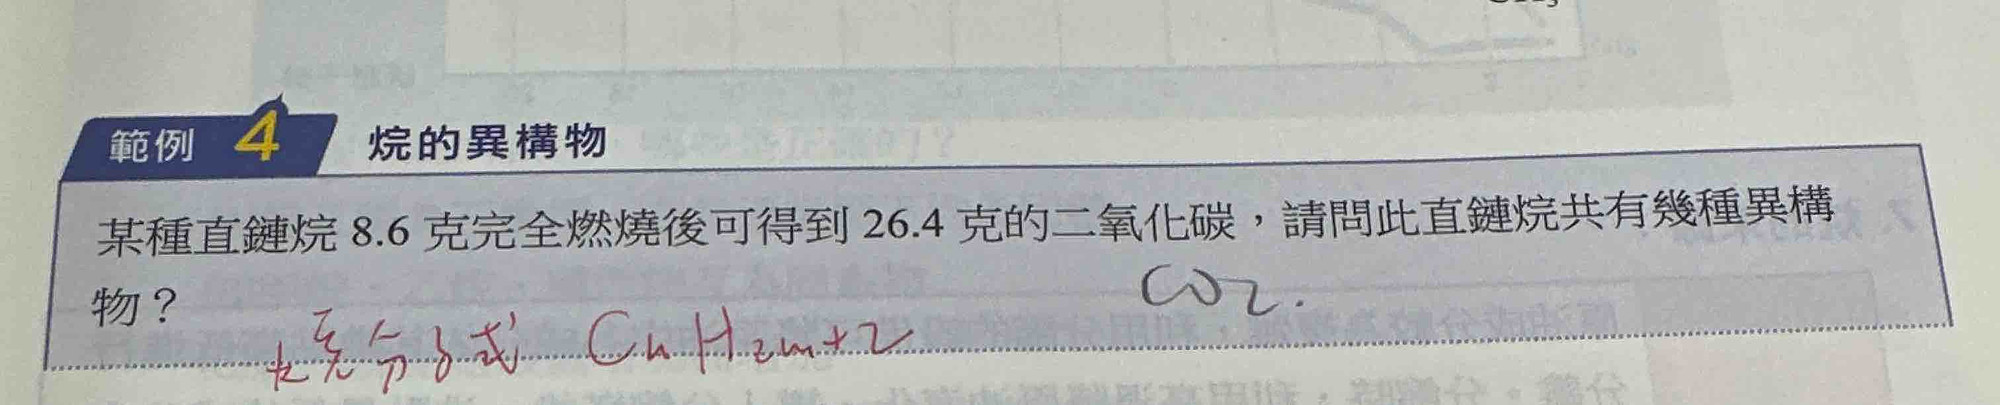 範例 4 烷的異構物
某種直鏈烷 8.6 克完全燃燒後可得到 26.4 克的二氧化碳，請問此直鏈烷共有幾種異構
物？
CO2.
分子式 CnH2n+2